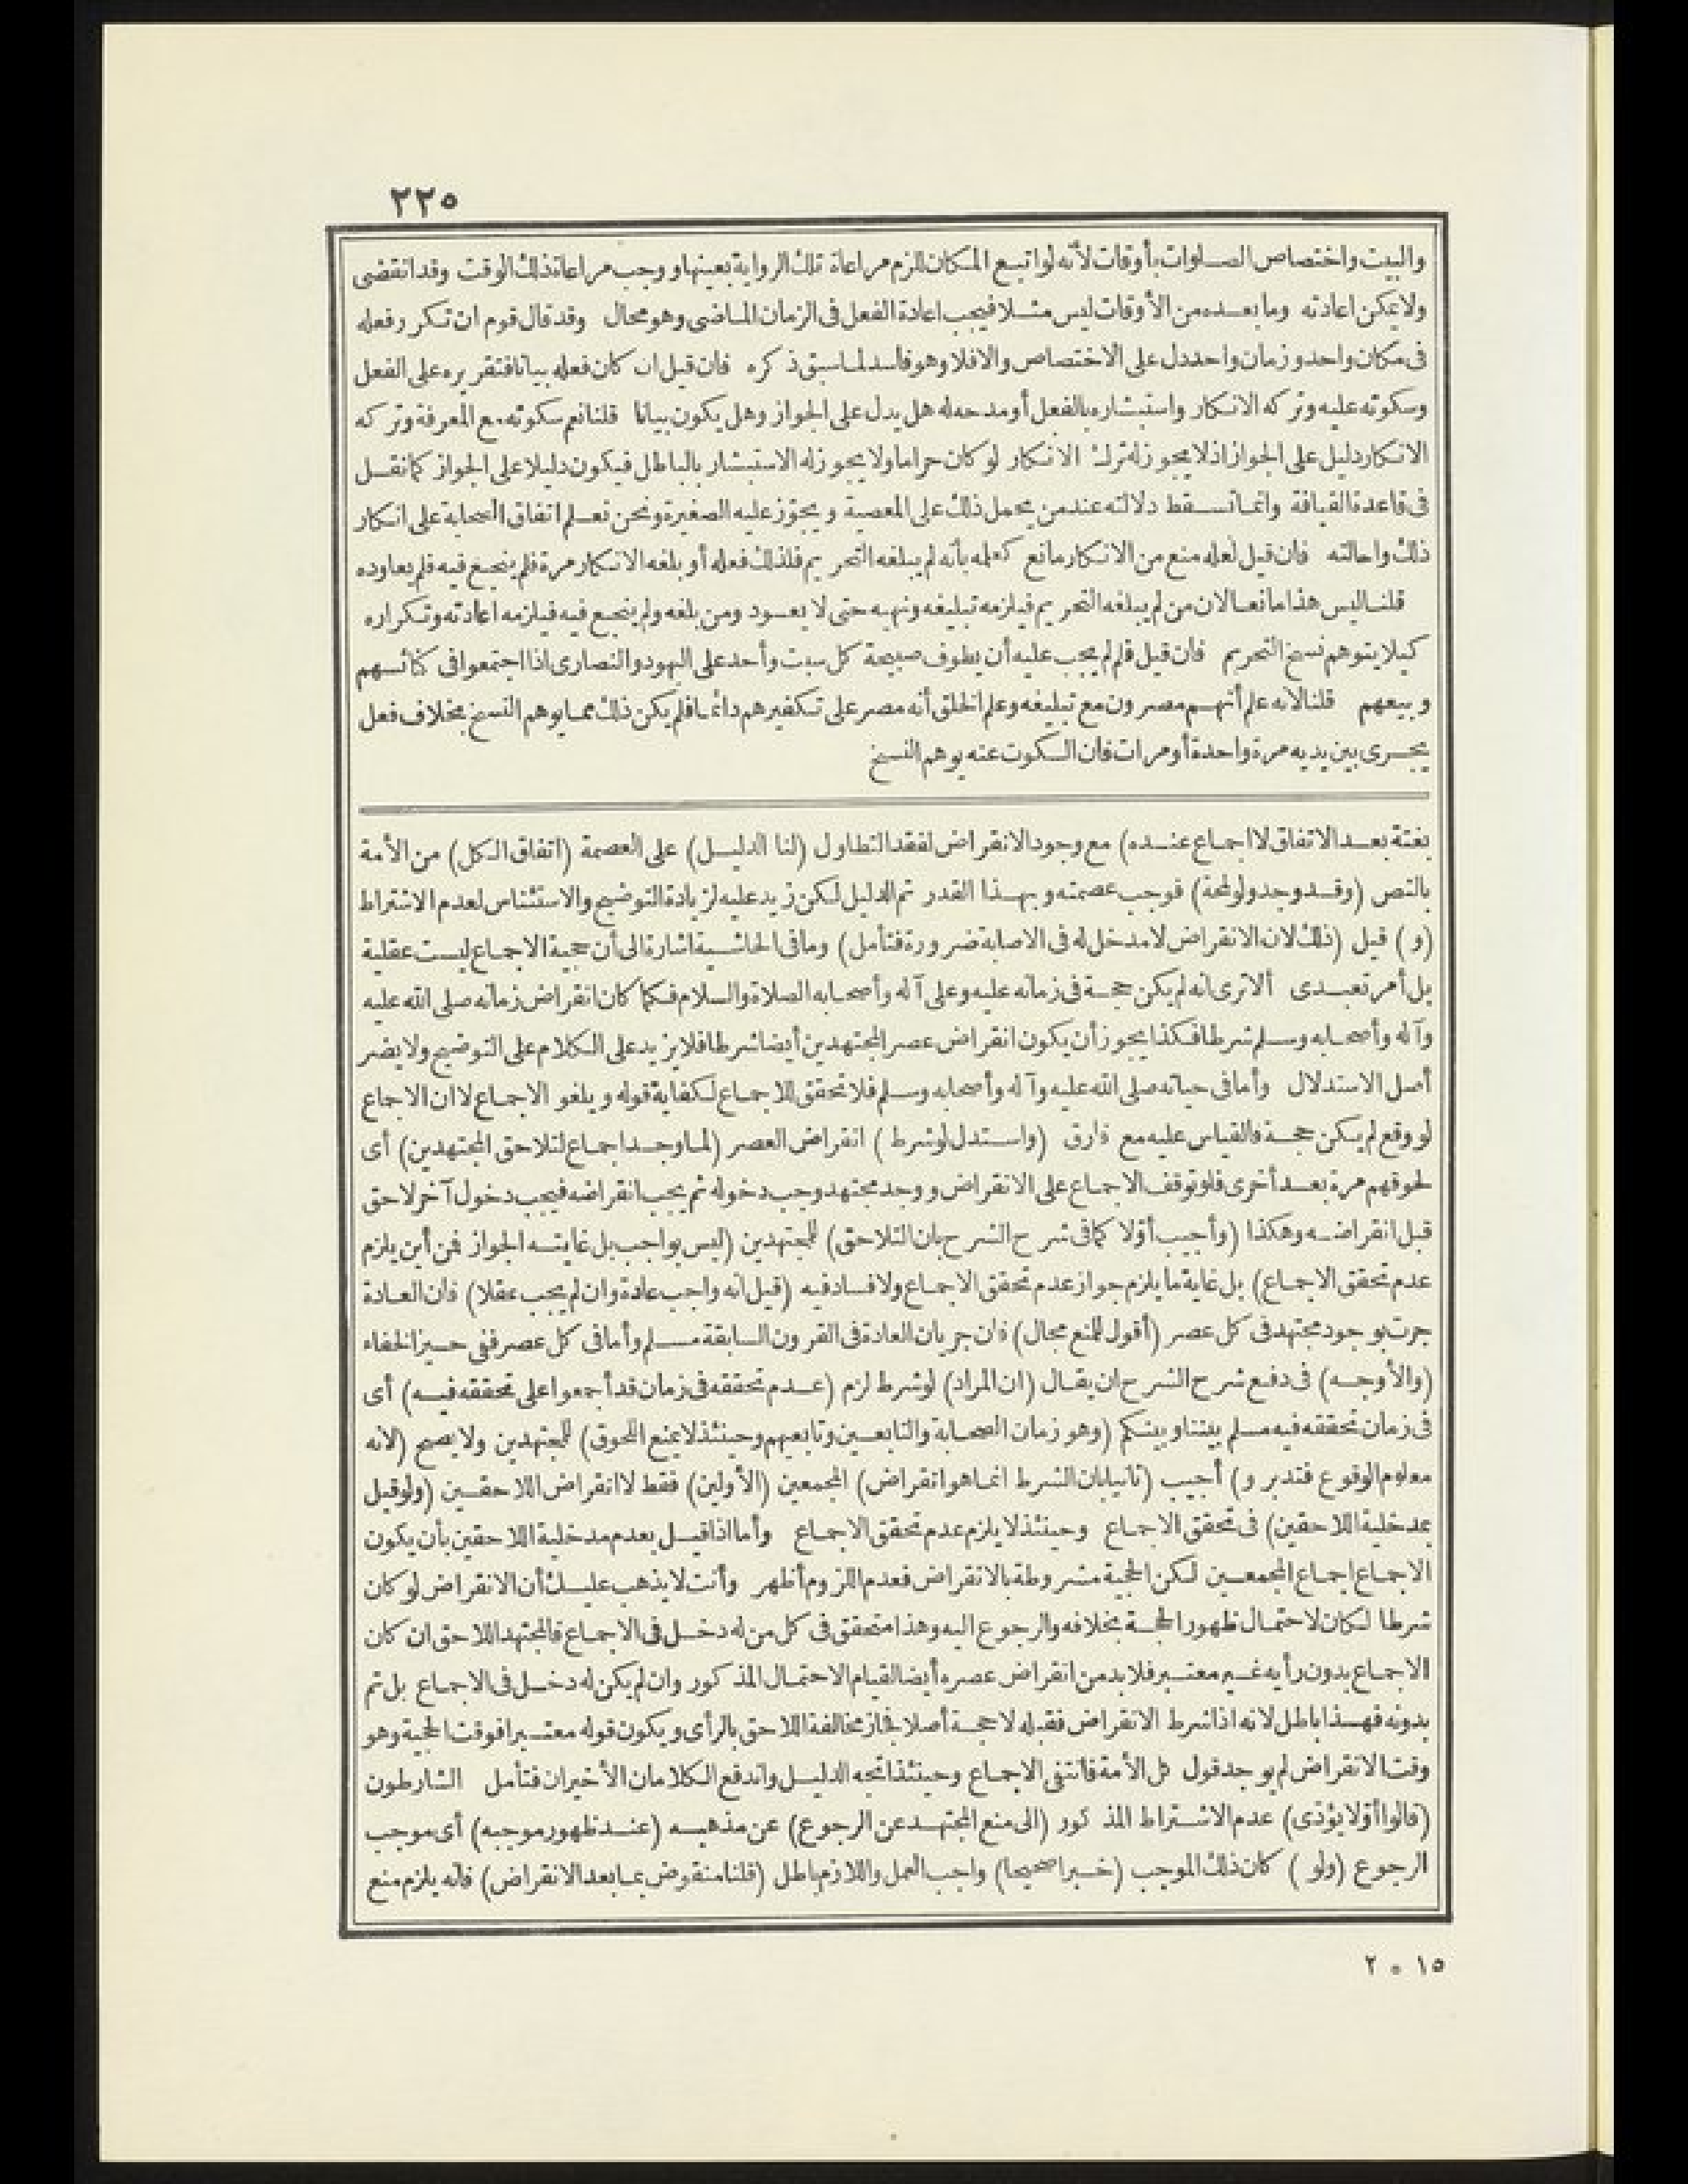 ٢٢٥
والبيت واختصاص الصلوات بأوقات لأنه لو اتبع المكان للزم مراعاة تلك الرواية بعينها ووجب مراعاة ذلك الوقت وقد انقضى
ولا يمكن اعادته وما بعده من الأوقات ليس مثلا فيجب اعادة الفعل فى الزمان الماضى وهو محال وقد قال قوم ان تكرر فعله
فى مكان واحد وزمان واحد دل على الاختصاص والا فلا وهو فاسد لما سبق ذكره فان قيل ان كان فعله بيانا فتقريره على الفعل
وسكوته عليه وتركه الانكار واستبشاره بالفعل أو مدحه له هل يدل على الجواز وهل يكون بيانا قلنا نعم سكوته مع المعرفة وتركه
الانكار دليل على الجواز اذ لا يجوز له ترك الانكار لو كان حراما ولا يجوز له الاستبشار بالباطل فيكون دليلا على الجواز كما نقل
فى قاعدة القيافة وانما تسقط دلالته عند من يحمل ذلك على المعصية ويجوّز عليه الصغيرة ونحن نعلم اتفاق الصحابة على انكار
ذلك واحالته فان قيل لعله منع من الانكار مانع كعلمه بأنه لم يبلغه التحريم فلذلك فعله أو بلغه الانكار مرة فلم ينجع فيه فلم يعاوده
قلنا ليس هذا مانعا لان من لم يبلغه التحريم فيلزمه تبليغه ونهيه حتى لا يعود ومن بلغه ولم ينجع فيه فيلزمه اعادته وتكراره
كيلا يتوهم نسخ التحريم فان قيل فلم لم يجب عليه أن يطوف صبيحة كل سبت وأحد على اليهود والنصارى اذا اجتمعوا فى كنائسهم
وبيعهم قلنا لانه علم أنهم مصرون مع تبليغه وعلم الخلق أنه مصر على تكفيرهم دائما فلم يكن ذلك مما يوهم النسخ بخلاف فعل
يجرى بين يديه مرة واحدة أو مرات فان السكوت عنه يوهم النسخ
بغتة بعد الاتفاق لا اجماع عنده) مع وجود الانقراض لفقد التطاول (لنا الدليل) على العصمة (اتفاق الكل) من الأمة
بالنص (وقد وجد ولو لمحة) فوجب عصمته وبهذا القدر تم الدليل لكن زيد عليه لزيادة التوضيح والاستئناس لعدم الاشتراط
(و) قيل (ذلك لان الانقراض لا مدخل له فى الاصابة ضرورة فتأمل) وما فى الحاشية اشارة الى أن حجية الاجماع ليست عقلية
بل أمر تعبدى ألا ترى انه لم يكن حجة فى زمانه عليه وعلى آله وأصحابه الصلاة والسلام فكما كان انقراض زمانه صلى الله عليه
وآله وأصحابه وسلم شرطا فكذا يجوز أن يكون انقراض عصر المجتهدين أيضا شرطا فلا يزيد على الكلام على التوضيح ولا يضر
أصل الاستدلال وأما فى حياته صلى الله عليه وآله وأصحابه وسلم فلا تحقق للاجماع لكفاية قوله ويلغو الاجماع لا ان الاجماع
لو وقع لم يكن حجة فالقياس عليه مع فارق (واستدل لو شرط) انقراض العصر (لما وجد اجماع لتلاحق المجتهدين) أى
لحوقهم مرة بعد أخرى فلو توقف الاجماع على الانقراض ووجد مجتهد وجب دخوله ثم يجب انقراضه فيجب دخول آخر لاحق
قبل انقراضه وهكذا (وأجيب أولا كما فى شرح الشرح بان التلاحق) للمجتهدين (ليس بواجب بل غايته الجواز فمن أين يلزم
عدم تحقق الاجماع) بل غاية ما يلزم جواز عدم تحقق الاجماع ولا فساد فيه (قيل انه واجب عادة وان لم يجب عقلا) فان العادة
جرت بوجود مجتهد فى كل عصر (أقول للمنع مجال) فان جريان العادة فى القرون السابقة مسلم وأما فى كل عصر ففى حيز الخفاء
(والأوجه) فى دفع شرح الشرح ان يقال (ان المراد) لو شرط لزم (عدم تحققه فى زمان قد أجمعوا على تحققه فيه) أى
فى زمان تحققه فيه مسلم بيننا وبينكم (وهو زمان الصحابة والتابعين وتابعيهم وحينئذ لا يمنع اللحوق) للمجتهدين ولا يصح (لانه
معلوم الوقوع فتدبر و) أجيب (ثانيا بان الشرط انما هو انقراض) المجمعين (الأولين) فقط لا انقراض اللاحقين (ولو قيل
بمدخلية اللاحقين) فى تحقق الاجماع وحينئذ لا يلزم عدم تحقق الاجماع وأما اذا قيل بعدم مدخلية اللاحقين بأن يكون
الاجماع اجماع المجمعين لكن الحجية مشروطة بالانقراض فعدم اللزوم أظهر وأنت لا يذهب عليك أن الانقراض لو كان
شرطا لكان لاحتمال ظهور الحجة بخلافه والرجوع اليه وهذا متحقق فى كل من له دخل فى الاجماع فالمجتهد اللاحق ان كان
الاجماع بدون رأيه غير معتبر فلا بد من انقراض عصره أيضا لقيام الاحتمال المذكور وان لم يكن له دخل فى الاجماع بل تم
بدونه فهذا باطل لانه اذا شرط الانقراض فقبله لا حجة أصلا فجاز مخالفة اللاحق بالرأى ويكون قوله معتبرا فوقت الحجية وهو
وقت الانقراض لم يوجد قول كل الأمة فانتفى الاجماع وحينئذ اتجه الدليل واندفع الكلامان الأخيران فتأمل الشارطون
(قالوا أولا يؤدى) عدم الاشتراط المذكور (الى منع المجتهد عن الرجوع) عن مذهبه (عند ظهور موجبه) أى موجب
الرجوع (ولو) كان ذلك الموجب (خبرا صحيحا) واجب العمل واللازم باطل (قلنا منقوض بما بعد الانقراض) فانه يلزم منع
١٥ * ٢